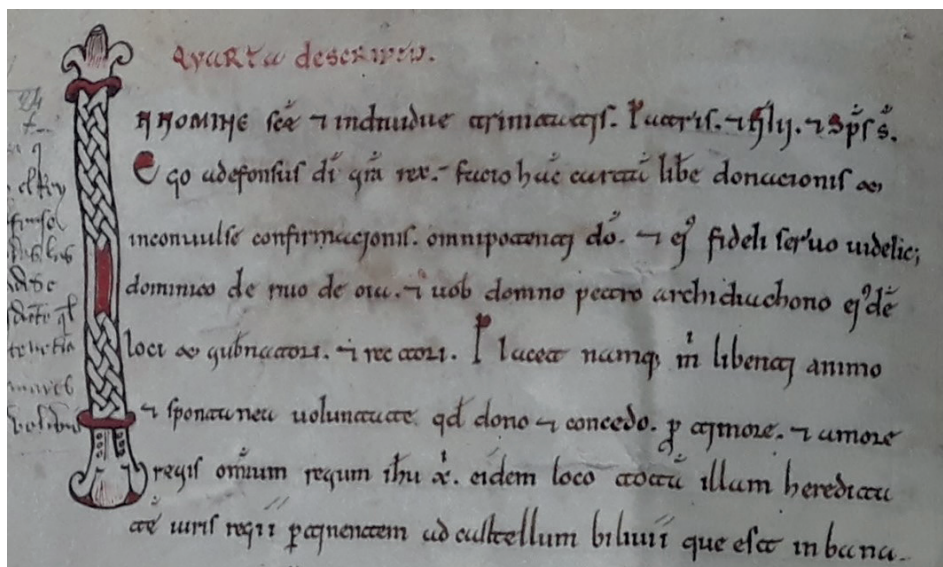 Quarta descriptio.
IN NOMINE sce ⁊ indiuidue trinitatis. Patris. ⁊ filii. ⁊ sps s.
Ego adefonsus di gra rex. facio hāc cartā libe donacionis et
inconuulse confirmacionis. omnipotenti do. ⁊ ei⁹ fideli seruo uidelic;
dominico de de oua. ⁊ uob domno petro archidiachono ei⁹dē
loci et gubnatori. ⁊ rectori. Placet namq; m libenti animo
⁊ spontanea uoluntate qd dono ⁊ concedo. ꝓ timore. ⁊ amore
regis omīum regum ihu x. eidem loco totā illam heredita
tē iuris regii ꝑtinentem ad castellum biliuii que est in bana.
el Rey